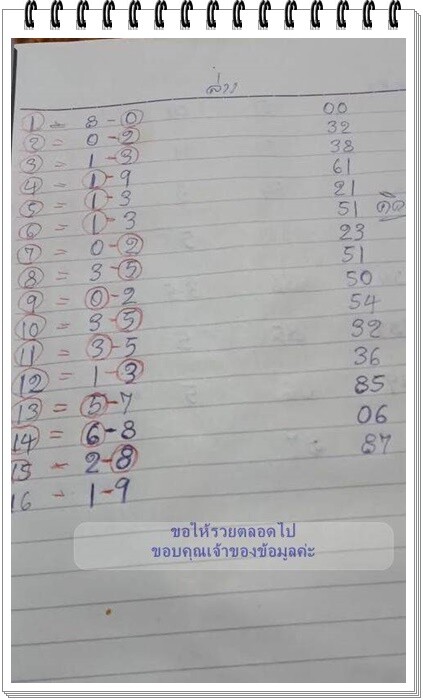 ล่าง
1 = 8 - 0 00
2 = 0 - 2 32
3 = 1 - 3 38
4 = 1 - 9 61
5 = 1 - 3 21
6 = 1 - 3 51
7 = 0 - 2 23
8 = 3 - 5 51
9 = 0 - 2 50
10 = 3 - 5 54
11 = 3 - 5 32
12 = 1 - 3 36
13 = 5 - 7 85
14 = 6 - 8 06
15 - 2 - 8 87
16 - 1 - 9
ขอให้รวยตลอดไป
ขอบคุณเจ้าของข้อมูลค่ะ